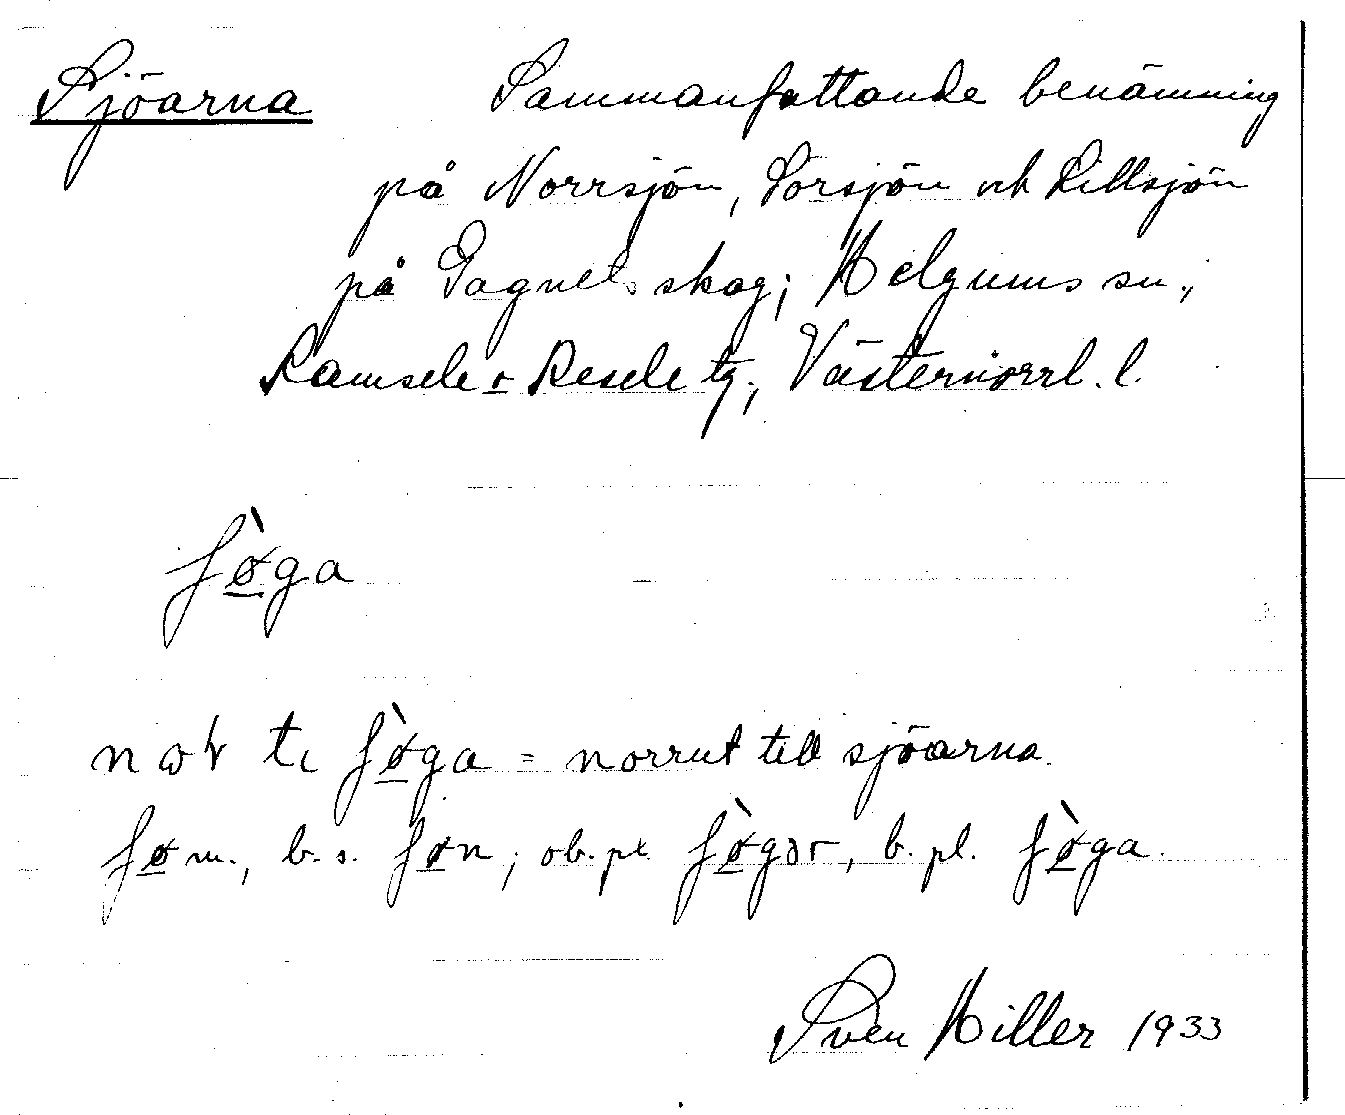 Sjöarna Sammanfattande benämning
på Norrsjön, Sörsjön och Lillsjön
på Gagnets skog; Helgums sn.,
Ramsele o Resele tg., Västernorrl. l.
ʃø̀ga
ʃø̀ga = norrut till sjöarna.
ʃø m., b. s. ʃøn; ob. pl. ʃø̀gər, b. pl. ʃø̀ga.
Sven Hiller 1933